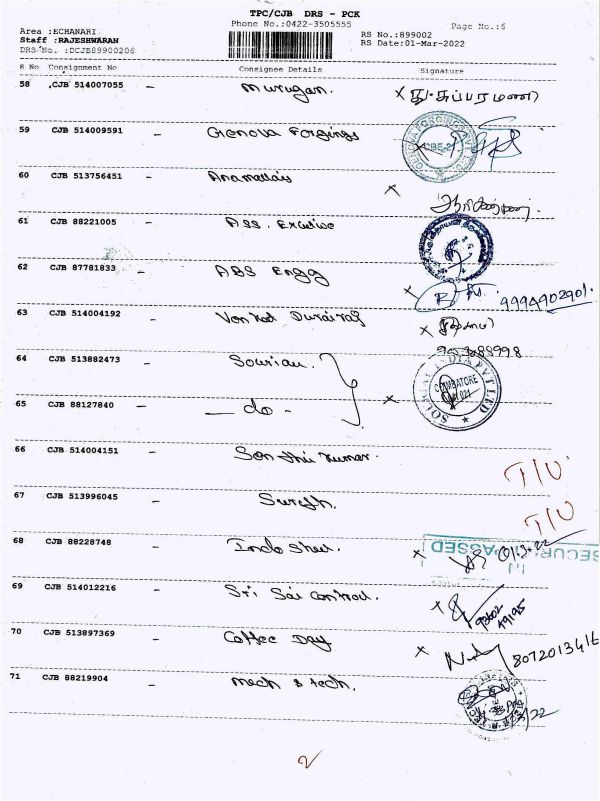 TPC/CJB DRS - PCK
Phone No.:0422-3505555
Page No.:6
Area :ECHANARI
Staff :RAJESHWARAN
DRS No. :DCJB89900206
RS No.:899002
RS Date:01-Mar-2022
S No Consignment No Consignee Details Signature
58 CJB 514007055 - Murugan. x து.சுப்பரமணி
59 CJB 514009591 - Genova Forgings x
60 CJB 513756451 - Anamallais x
61 CJB 88221005 - Ass. Exclusive
62 CJB 87781833 - ABS Engg x 9994902901.
63 CJB 514004192 - Venkat Durairaj x
64 CJB 513882473 - Souriau.
65 CJB 88127840 - - do - x
SOURIAU INDIA PVT LTD
COIMBATORE
66 CJB 514004151 - Senthil Kumar.
T/U
67 CJB 513996045 - Suresh.
T/U
68 CJB 88228748 - Indo Shell. x
SECURI PASSED
69 CJB 514012216 - Sri Sai Control. x 93602 49195
70 CJB 513897369 - Coffee Day x 8072013416
71 CJB 88219904 - Mech & tech.
2